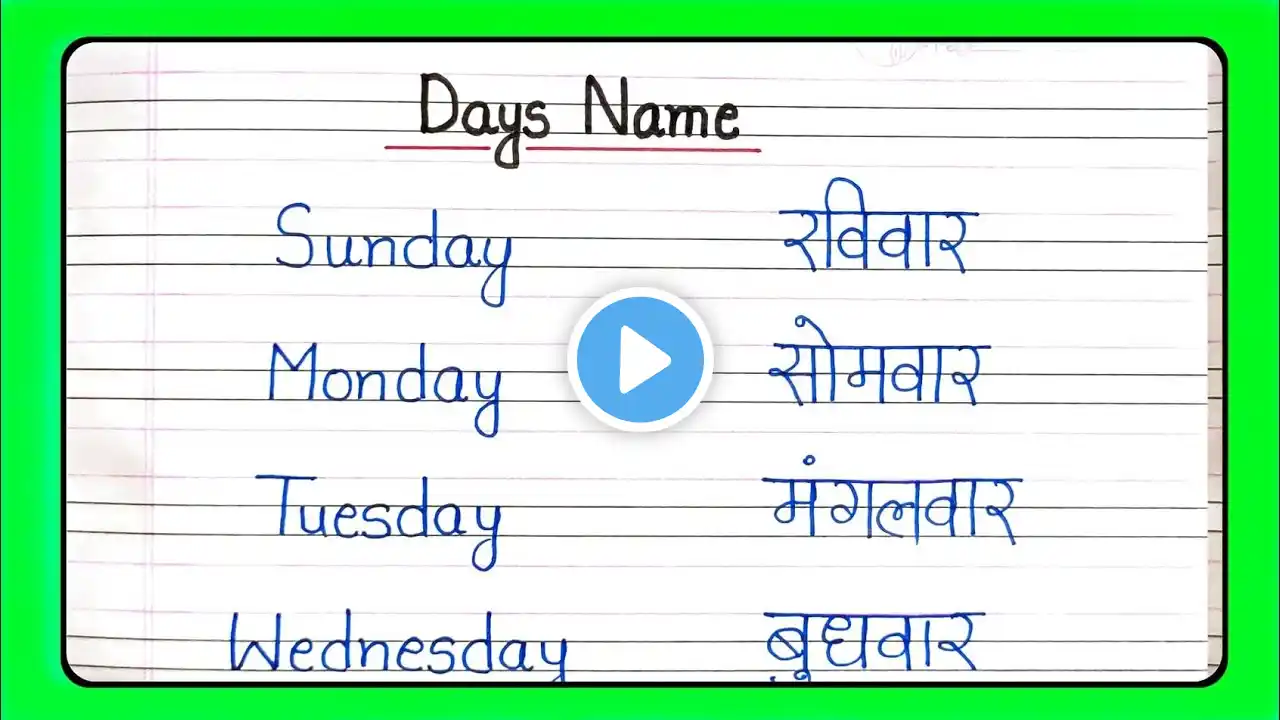 Days Name
Sunday रविवार
Monday सोमवार
Tuesday मंगलवार
Wednesday बुधवार